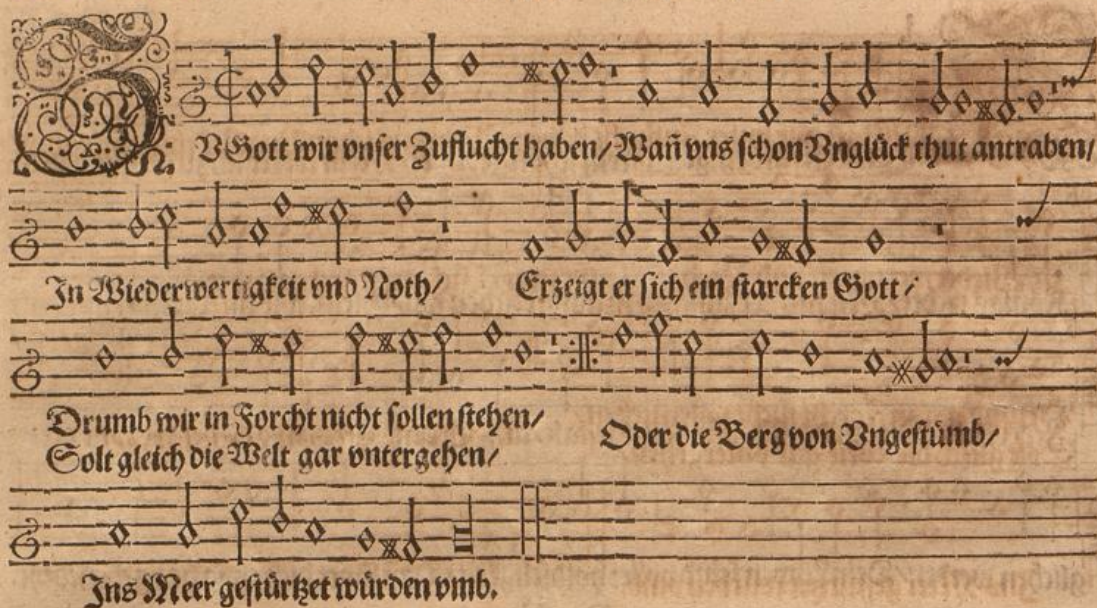 ZV Gott wir vnser Zuflucht haben/ Wañ vns schon Vnglück thut antraben/
In Wiederwertigkeit vnd Noth/ Erzeigt er sich ein starcken Gott/
Drumb wir in Forcht nicht sollen stehen/
Solt gleich die Welt gar vntergehen/
Oder die Berg von Vngestümb/
Ins Meer gestürtzet würden vmb.